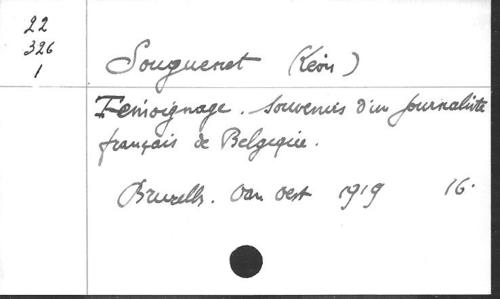 22
326
1
Souguenet (Léon)
Témoignage. Souvenirs d'un journaliste
français de Belgique.
Bruxelles. Van Oest 1919 16.